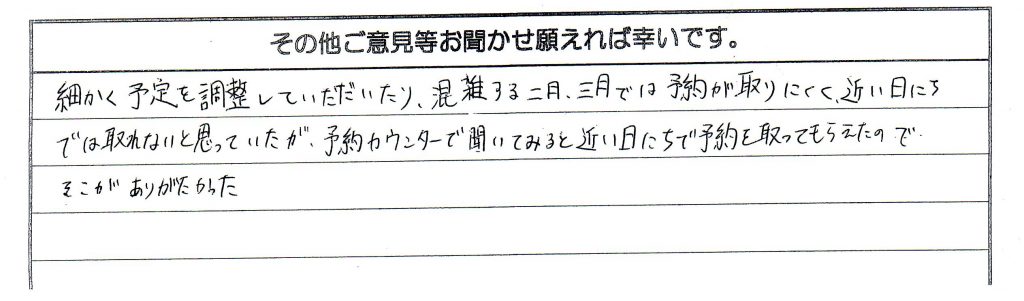 その他ご意見等お聞かせ願えれば幸いです。
細かく予定を調整していただいたり、混雑する二月、三月では予約が取りにくく、近い日にち
では取れないと思っていたが、予約カウンターで聞いてみると近い日にちで予約を取ってもらえたので、
そこがありがたかった